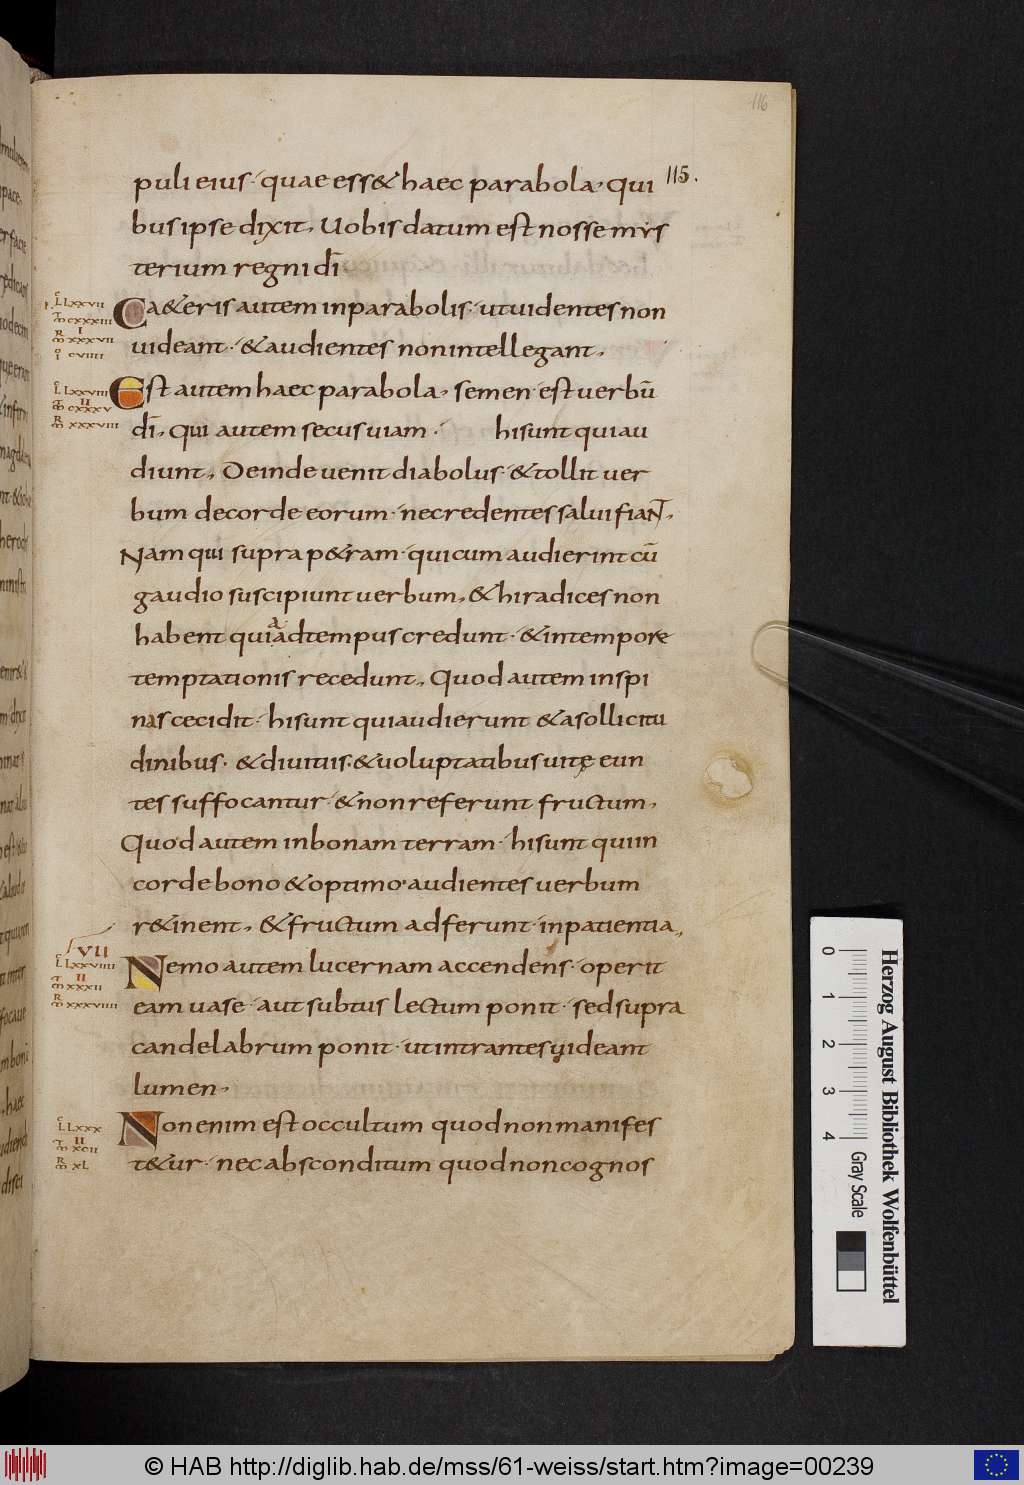 116
puli eius· quae ess& haec parabola, qui 115.
bus ipse dixit, Uobis datum est nosse mys
terium regni dī
Ca&eris autem in parabolis· ut uidentes non
uideant· & audientes non intellegant,
Est autem haec parabola, semen· est uerbū
dī, qui autem secus uiam· hi sunt qui au
diunt, Deinde uenit diabolus· & tollit uer
bum de corde eorum· ne credentes salui fiant,
Nam qui supra p&ram· qui cum audierint cū
gaudio suscipiunt uerbum, & hi radices non
habent quia ad tempus credunt· & in tempore
temptationis recedunt, Quod autem in spi
nas cecidit· hi sunt qui audierunt & a sollicitu
dinibus· & diuitiis· & uoluptatibus uitę eun
tes suffocantur· & non referunt fructum,
Quod autem in bonam terram· hi sunt qui in
corde bono & optimo· audientes uerbum
r&inent, & fructum adferunt· in patientia,,
VII
Nemo autem lucernam accendens· operit
eam uase· aut subtus lectum ponit· sed supra
candelabrum ponit· ut intrantes uideant
lumen,
Non enim est occultum quod non manifes
t&ur· nec absconditum quod non cognos
L LXXVII
CXXXIII
I
XXXVII
CVIIII
L LXXVIII
II
CXXXV
XXXVIII
L LXXVIIII
II
XXXII
XXXVIIII
L LXXX
II
XCII
XL
0 1 2 3 4
Gray Scale
Herzog August Bibliothek Wolfenbüttel
© HAB http://diglib.hab.de/mss/61-weiss/start.htm?image=00239